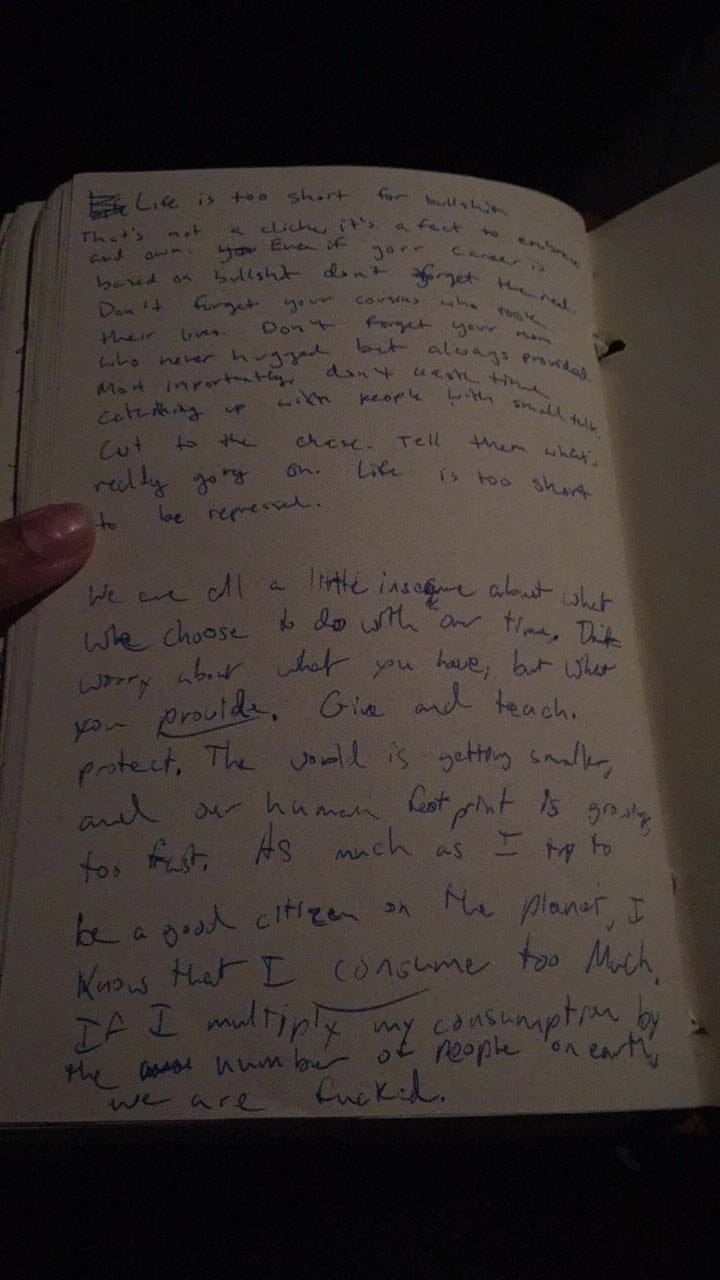 Life is too short for bullshit
That's not a cliche, it's a fact to embrace
and own. Even if your career is
based on bullshit don't forget the real.
Don't forget your cousins who took
their lives. Don't forget your mom
who never hugged but always provided.
Most importantly, don't waste time
catching up with people with small talk.
Cut to the chase. Tell them what's
really going on. Life is too short
to be repressed.
We are all a little insecure about what
we choose to do with our time. Don't
worry about what you have, but what
you provide. Give and teach.
protect. The world is getting smaller,
and our human footprint is growing
too fast. As much as I try to
be a good citizen on the planet, I
know that I consume too Much.
If I multiply my consumption by
the number of people on earth,
we are fuckid.